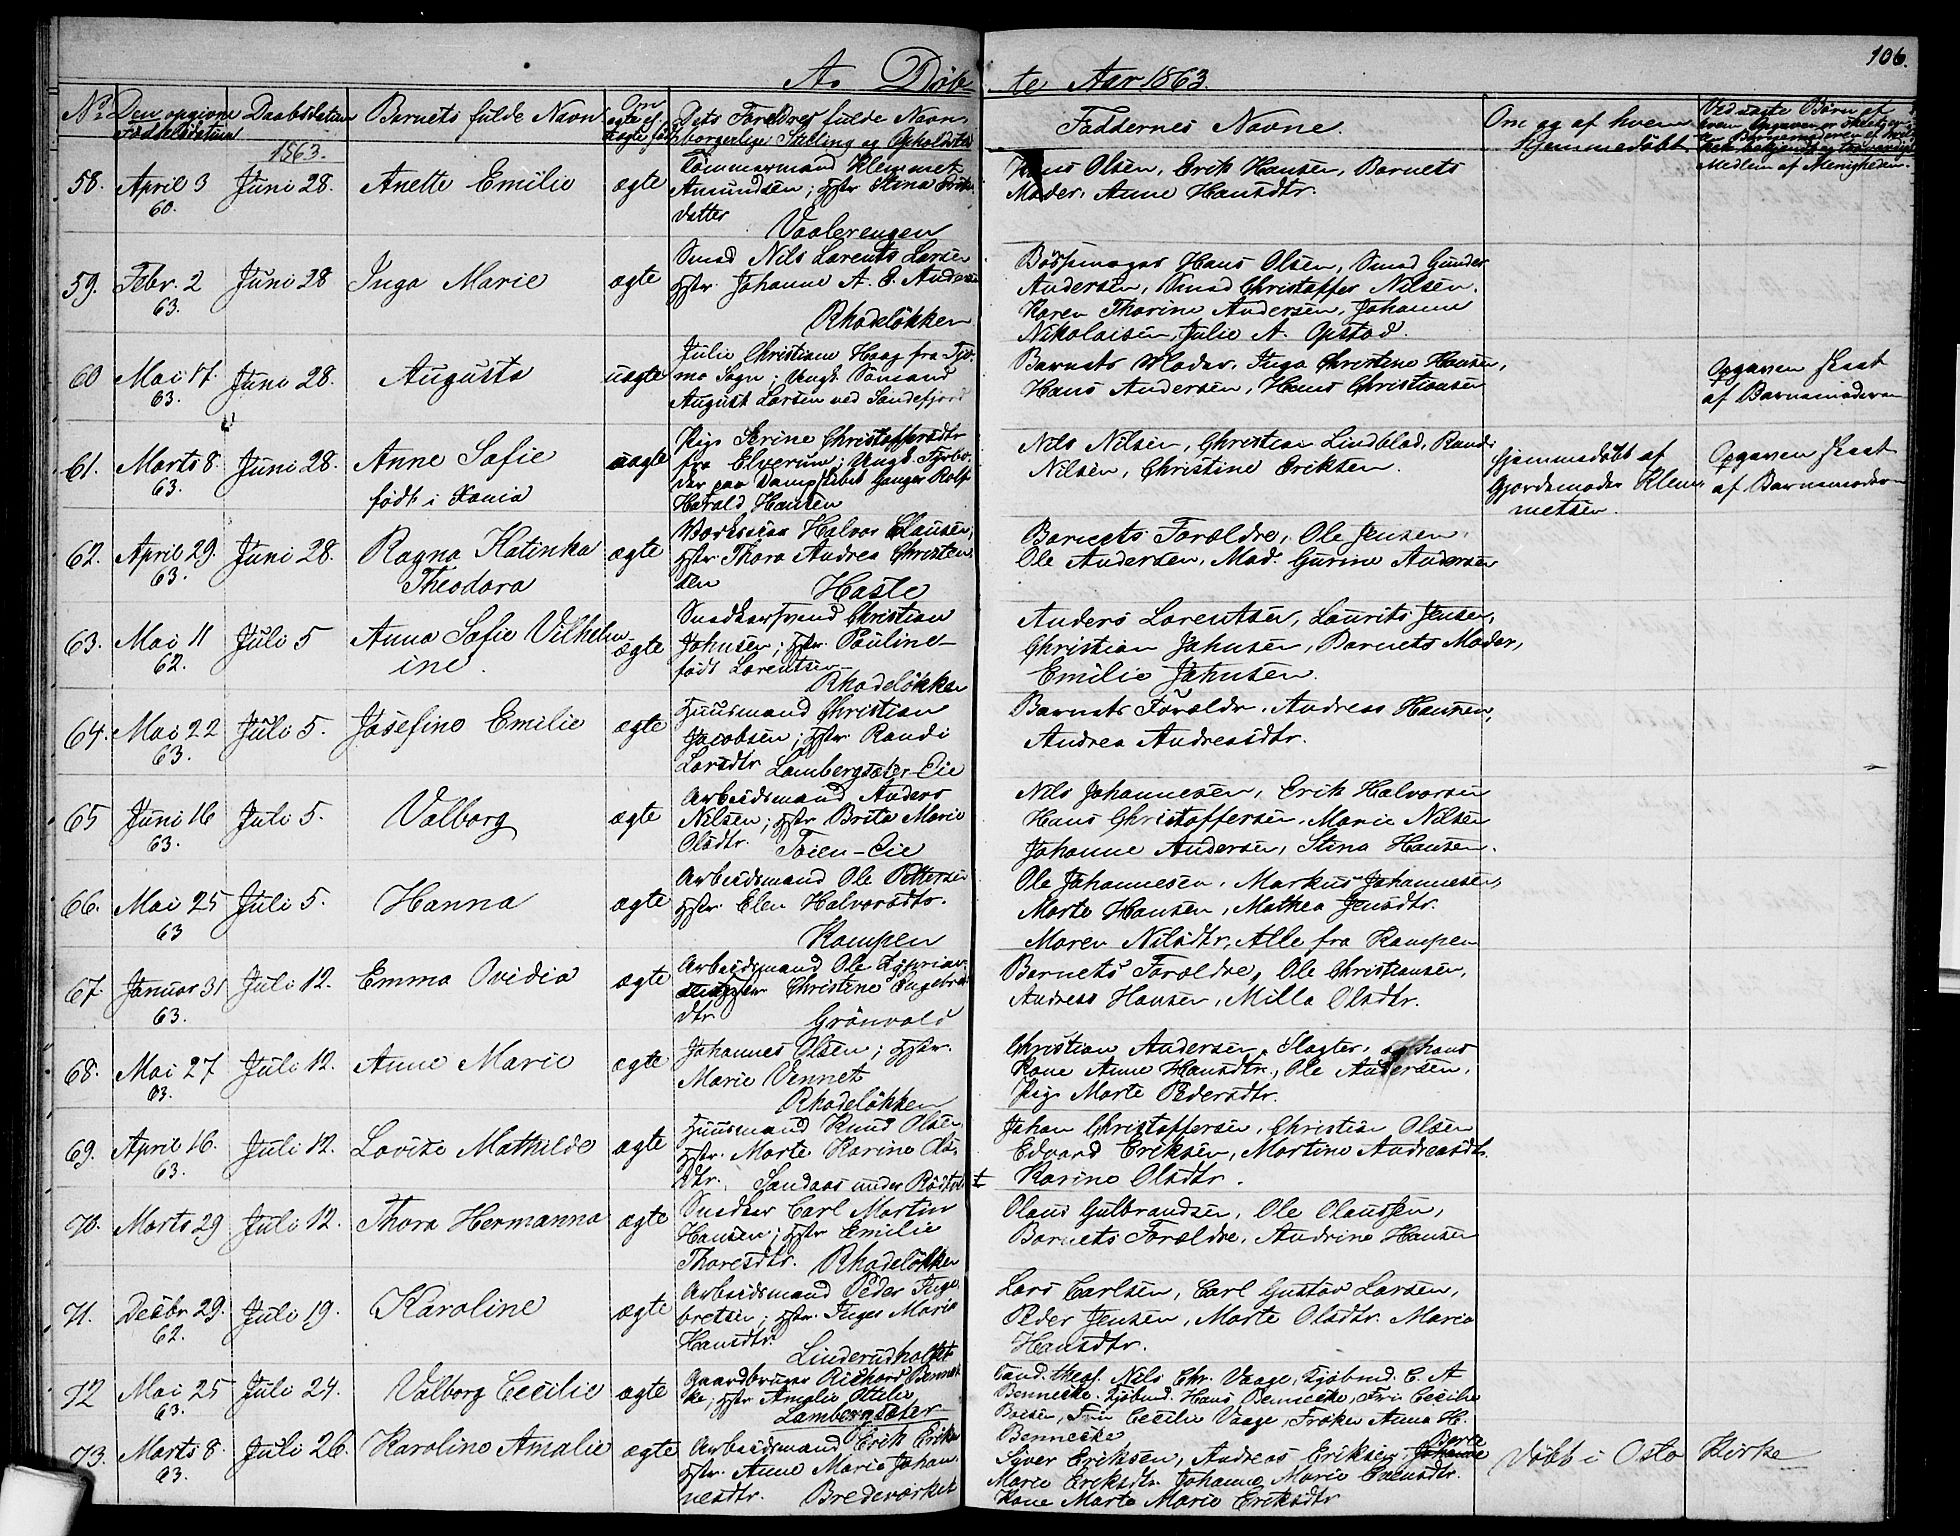 106.
Døbte Aar 1863.
No. Den opgivne Fødselsdatum Daabsdatum Barnets fulde Navn Om ægte el. uægte født Dets Forældres fulde Navn, borgerlige Stilling og Opholdssted Faddernes Navne. Om og af hvem hjemmedøbt.
1863.
58. April 3 60. Juni 28. Anette Emilie ægte Tømmermand Klemmet
Amundsen; Hstr Stina
datter
Vaalerengen
Hans Olsen, Erik Hansen, Barnets
Moder, Anne Hansdtr.
59. Febr. 2 63. Juni 28 Inga Marie ægte Smed Nils Lorents Larsen
Hstr. Johanne A. E. Andersen
Rhodeløkken
Bøssemager Hans Olsen, Smed Gunder
Andersen, Smed Christoffer Nilsen.
Karen Thorine Andersen, Johanne
Nikolaisen, Julie A. Opstad.
60 Mai 17. 63. Juni 28. Augusta uægte Julie Christiane Haag fra Tjø-
mø Sogn; Ungk. Sømand
August Larsen ved Sandefjord
Barnets Moder, Inga Christine Hansen,
Hans Andersen, Hans Christiansen
Opgaven skeet
af Barnemoderen
61. Marts 8. 63. Juni 28. Anne Sofie
født i Xania
uagte Pige Serine Christoffersdtr
fra Elverum; Ungk. Fyrbø-
der paa Dampskibet Ganger Rolf
Harald Hansen
Nils Nilsen, Christian Lindblad, Randi
Nilsen, Christine Eriksen.
Hjemmedøbt af
Gjordemoder Klem-
metsen.
Opgaven skeet
af Barnemoderen
62. April 29. 63. Juni 28. Ragna Katinka
Theodora
ægte Værkseier Halvor Clausen;
Hstr. Thora Andrea Christen
sen
Hasle
Barnets Forældre, Ole Jensen,
Ole Andersen, Mad. Gurine Andersen
63. Mai 11 62. Juli 5 Anna Sofie Vilhelm-
ine.
ægte Snedkersvend Christian
Johnsen; Hstr. Pauline
født Lorentsen
Rhodeløkken
Anders Lorentsen, Laurits Jensen,
Christian Johnsen, Barnets Moder,
Emilie Johnsen.
64. Mai 22 63. Juli 5. Josefine Emilie ægte Huusmand Christian
Jacobsen; Hstr. Randi
Larsdtr Lambergsæter-Eie
Barnets Forældr. Andreas Hansen,
Andrea Andreasdtr.
65 Juni 16 63. Juli 5. Valborg ægte Arbeidsmand Anders
Nilsen; Hstr Brite Marie
Olsdtr. Tøien-Eie
Nils Johannesen, Erik Halvorsen
Hans Christoffersen, Marie Nilsen
Johanne Andersen, Stina Hansen.
66. Mai 25 63 Juli 5. Hanna ægte Arbeidsmand Ole Pettersen
Hstr. Elen Halvorsdtr.
Kampen
Ole Johannesen, Markus Johannesen,
Marte Hansen, Mathea Jensdtr.
Maren Nilsdtr, Alle fra Kampen
67. Januar 31 63. Juli 12. Emma Ovidia ægte Arbeidsmand Ole
Hstr Christine Ingebr
dtr. Grönvold
Barnets Forældre, Ole Christiansen,
Andreas Hansen, Milla Olsdtr.
68. Mai 27 63. Juli 12. Anne Marie ægte Johannes Olsen; Hstr.
Marie Vennet
Rhodeløkken
Christian Andersen, Slagter, og hans
Kone Anne Hansdtr., Ole Andersen,
Pige Marte Pedersdtr.
69. April 16. 63. Juli 12. Lovise Mathilde ægte Huusmand Knud Olsen
Hstr. Marte Karine Ols-
dtr. Sandaas under Rødtvet
Johan Christoffersen, Christian Olsen
Edvard Eriksen, Martine Andreasdtr.
Karine Olsdtr.
70. Marts 29 Juli 12. Thora Hermanna ægte Snedker Carl Martin
Hansen; Hstr Emilie
Thoresdtr. Rhodeløkken
Olaus Gulbrandsen, Ole Olaussen,
Barnets Forældre, Andrine Hansen
71. Decbr 29. 62. Juli 19. Karoline ægte Arbeidsmand Peder Inge-
bretsen; Hstr. Inger Marie
Hansdtr.
Linderudholst
Lars Carlsen, Carl Gustav Larsen,
Peder Jensen, Marte Olsdtr. Maria
Hansdtr.
72 Mai 25 63. Juli 24. Valborg Cecilie ægte Gaardbruger Richard Bennec-
ke; Hstr Amalie Ottilie
Lambergsæter
Cand. theol. Nils Chr. Vaage, Kjøbmd. C. A
Bennecke. Kjøbmd. Hans Bennecke, Fru Cecilie
Boisen, Fru Cecilie Vaage, Frøken Anna H.
Bennecke
73. Marts 8. 63. Juli 26. Karoline Amalie ægte Arbeidsmand Erik Eriksen
Hstr. Anne Marie Johan-
nesdtr. Bredeværket
Syver Eriksen, Andreas Eriksen, Johanne Berte
Marie Eriksdtr. Johanne Marie Evensdtr.
Kone Marte Marie Eriksdtr
Døbt i Oslo Kirke